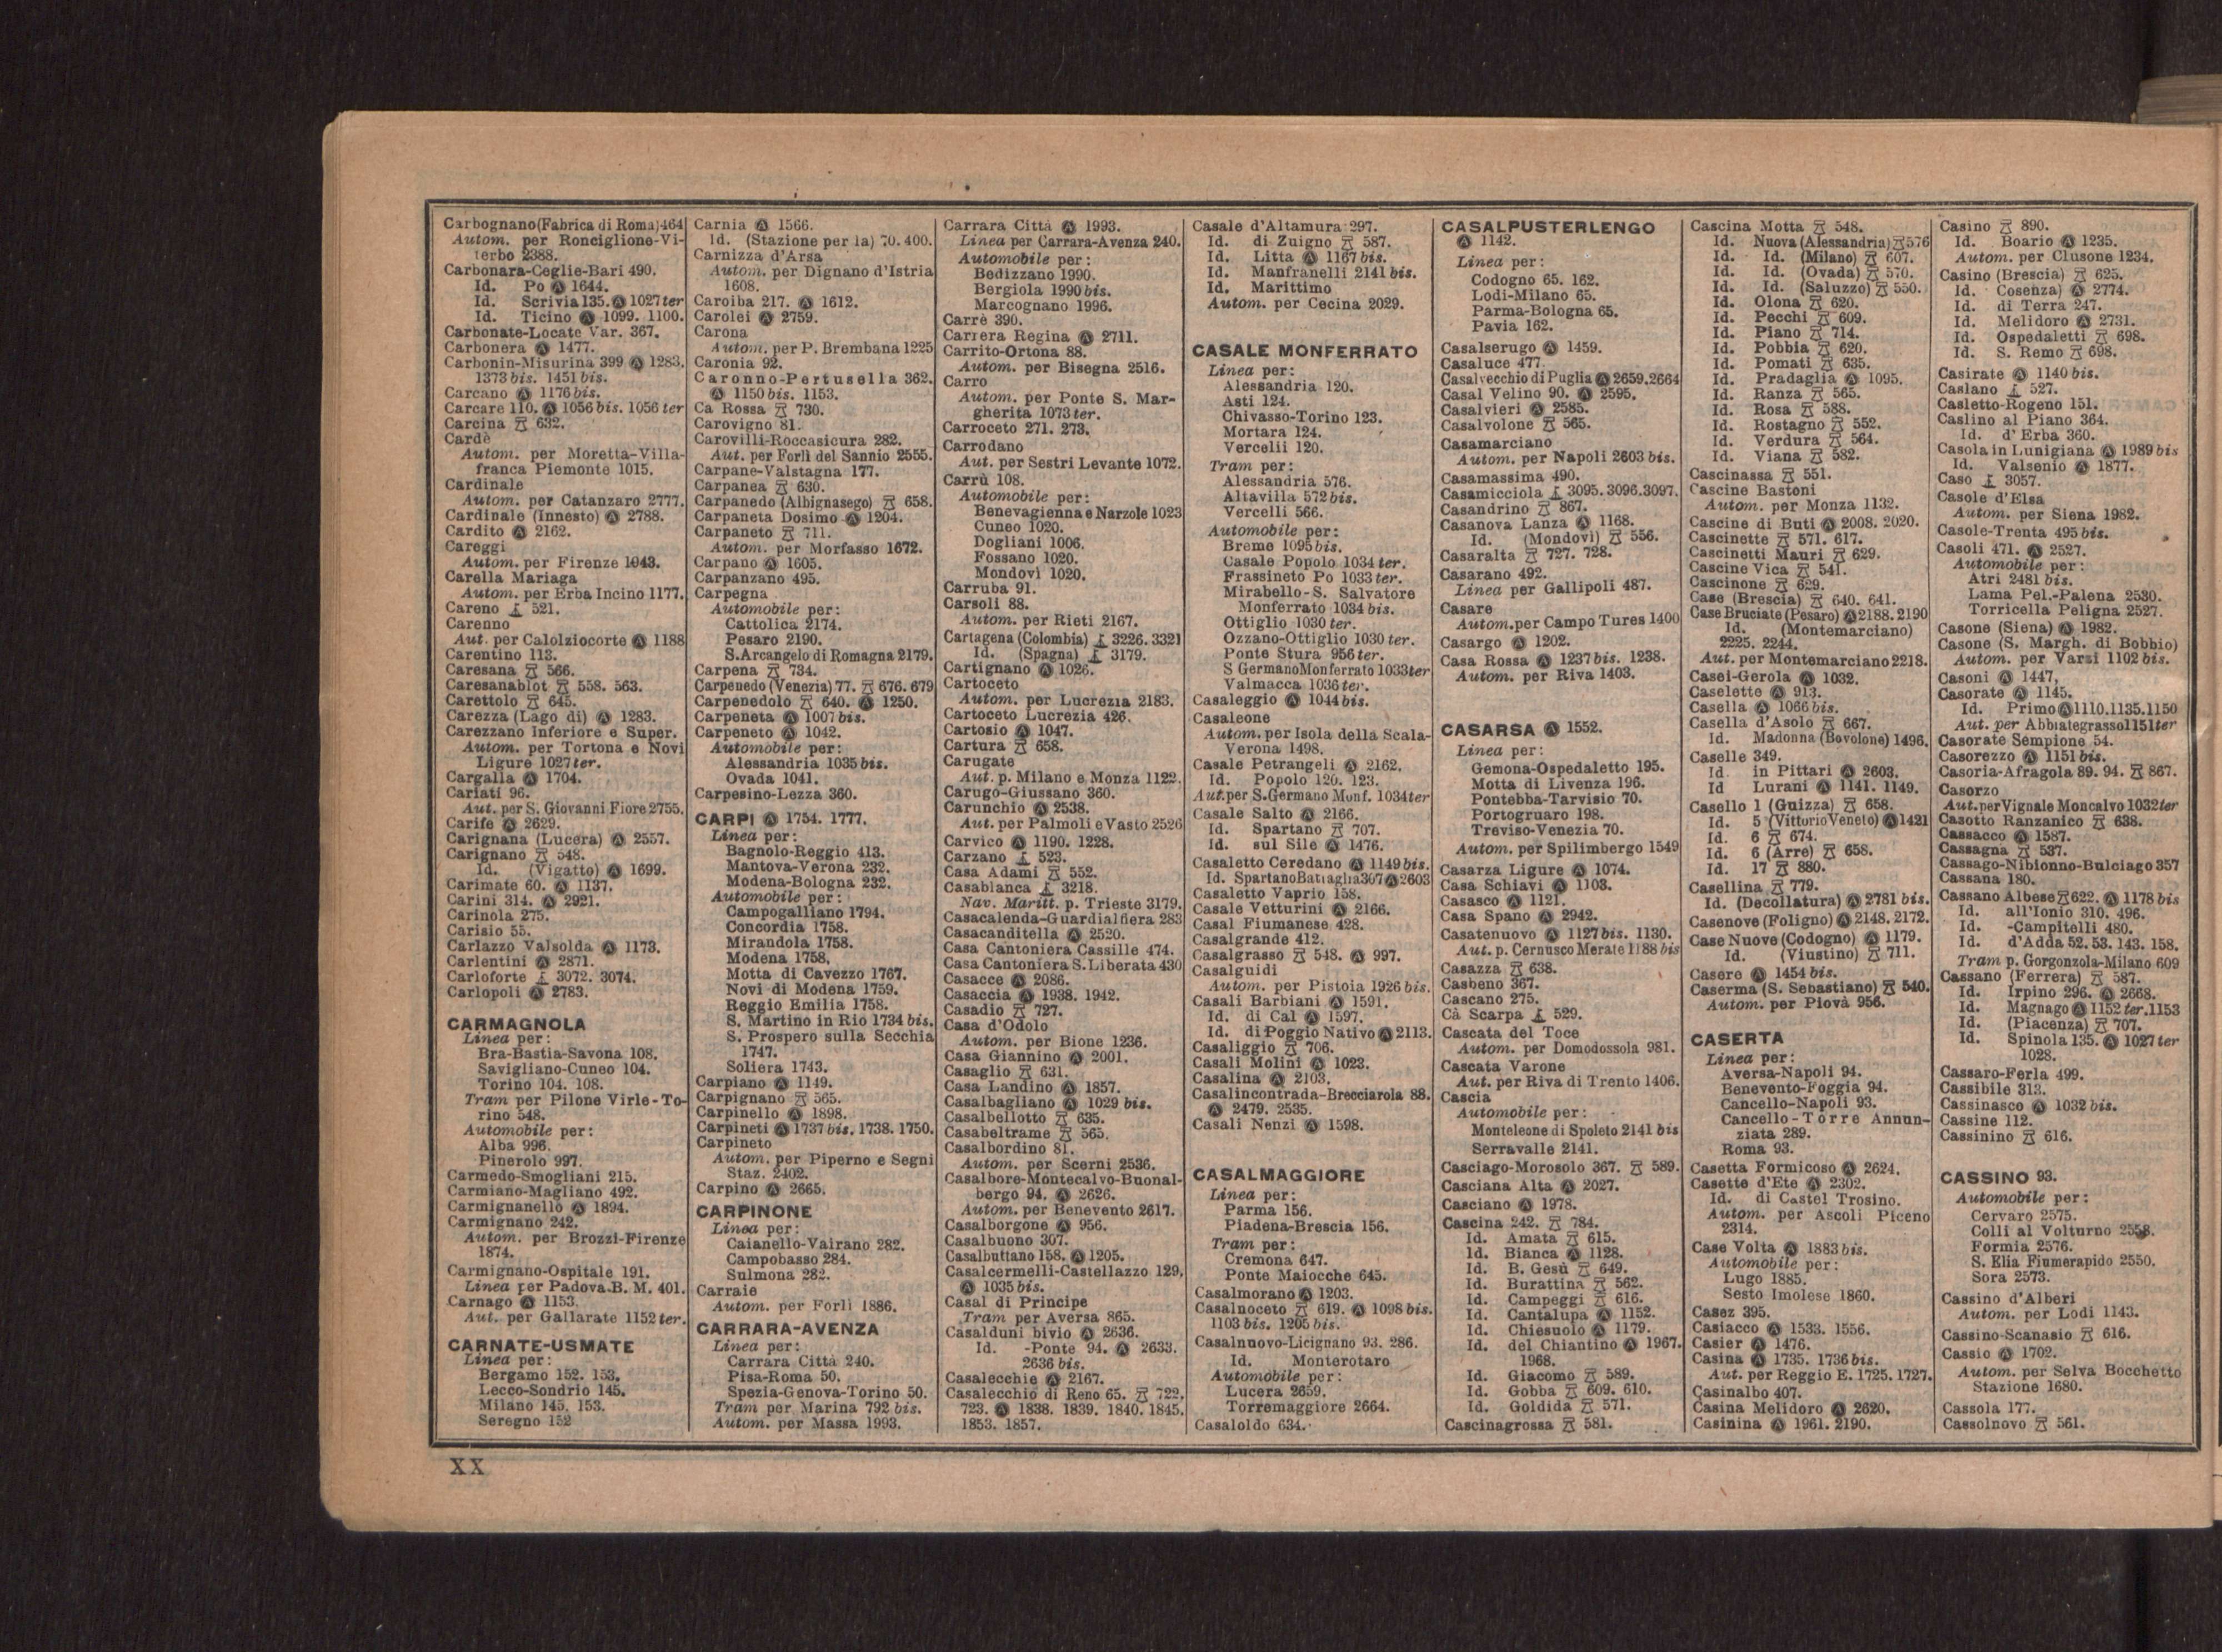 Carbognano (Fabrica di Roma) 464
Autom. per Ronciglione-Vi-
terbo 2388.
Carbonara-Ceglie-Bari 490.
Id. Po Ⓐ 1644.
Id. Scrivia 135. Ⓐ 1027 ter
Id. Ticino Ⓐ 1099. 1100.
Carbonate-Locate Var. 367.
Carbonera Ⓐ 1477.
Carbonin-Misurina 399 Ⓐ 1283.
1373 bis. 1451 bis.
Carcano Ⓐ 1176 bis.
Carcare 110. Ⓐ 1056 bis. 1056 ter
Carcina 632.
Cardè
Autom. per Moretta-Villa-
franca Piemonte 1015.
Cardinale
Autom. per Catanzaro 2777.
Cardinale (Innesto) Ⓐ 2788.
Cardito Ⓐ 2162.
Careggi
Autom. per Firenze 1943.
Carella Mariaga
Autom. per Erba Incino 1177.
Careno 521.
Carenno
Aut. per Calolziocorte Ⓐ 1188
Carentino 113.
Caresana 566.
Caresanablot 558. 563.
Carettolo 645.
Carezza (Lago di) Ⓐ 1283.
Carezzano Inferiore e Super.
Autom. per Tortona e Novi
Ligure 1027 ter.
Cargalla Ⓐ 1704.
Cariati 96.
Aut. per S. Giovanni Fiore 2755.
Carife Ⓐ 2629.
Carignana (Lucera) Ⓐ 2557.
Carignano 548.
Id. (Vigatto) Ⓐ 1699.
Carimate 60. Ⓐ 1137.
Carini 314. Ⓐ 2921.
Carinola 275.
Carisio 55.
Carlazzo Valsolda Ⓐ 1173.
Carlentini Ⓐ 2871.
Carloforte 3072. 3074.
Carlopoli Ⓐ 2783.
CARMAGNOLA
Linea per:
Bra-Bastia-Savona 108.
Savigliano-Cuneo 104.
Torino 104. 108.
Tram per Pilone Virle-To-
rino 548.
Automobile per:
Alba 996.
Pinerolo 997.
Carmedo-Smogliani 215.
Carmiano-Magliano 492.
Carmignanello Ⓐ 1894.
Carmignano 242.
Autom. per Brozzi-Firenze
1874.
Carmignano-Ospitale 191.
Linea per Padova B. M. 401.
Carnago Ⓐ 1153.
Aut. per Gallarate 1152 ter.
CARNATE-USMATE
Linea per:
Bergamo 152. 153.
Lecco-Sondrio 145.
Milano 145. 153.
Seregno 152
Carnia Ⓐ 1566.
Id. (Stazione per la) 70. 400.
Carnizza d'Arsa
Autom. per Dignano d'Istria
1608.
Caroiba 217. Ⓐ 1612.
Carolei Ⓐ 2759.
Carona
Autom. per P. Brembana 1225
Caronia 92.
Caronno-Pertusella 362.
Ⓐ 1150 bis. 1153.
Ca Rossa 730.
Carovigno 81.
Carovilli-Roccasicura 282.
Aut. per Forlì del Sannio 2555.
Carpane-Valstagna 177.
Carpanea 630.
Carpanedo (Albignasego) 658.
Carpaneta Dosimo Ⓐ 1204.
Carpaneto 711.
Autom. per Morfasso 1672.
Carpano Ⓐ 1605.
Carpanzano 495.
Carpegna
Automobile per:
Cattolica 2174.
Pesaro 2190.
S. Arcangelo di Romagna 2179.
Carpena 734.
Carpenedo (Venezia) 77. 676. 679
Carpenedolo 640. Ⓐ 1250.
Carpeneta Ⓐ 1007 bis.
Carpeneto Ⓐ 1042.
Automobile per:
Alessandria 1035 bis.
Ovada 1041.
Carpesino-Lezza 360.
CARPI Ⓐ 1754. 1777.
Linea per:
Bagnolo-Reggio 413.
Mantova-Verona 232.
Modena-Bologna 232.
Automobile per:
Campogalliano 1794.
Concordia 1758.
Mirandola 1758.
Modena 1758.
Motta di Cavezzo 1767.
Novi di Modena 1759.
Reggio Emilia 1758.
S. Martino in Rio 1734 bis.
S. Prospero sulla Secchia
1747.
Soliera 1743.
Carpiano Ⓐ 1149.
Carpignano 565.
Carpinello Ⓐ 1898.
Carpineti Ⓐ 1737 bis. 1738. 1750.
Carpineto
Autom. per Piperno e Segni
Staz. 2402.
Carpino Ⓐ 2665.
CARPINONE
Linea per:
Caianello-Vairano 282.
Campobasso 284.
Sulmona 282.
Carraie
Autom. per Forlì 1886.
CARRARA-AVENZA
Linea per:
Carrara Città 240.
Pisa-Roma 50.
Spezia-Genova-Torino 50.
Tram per Marina 792 bis.
Autom. per Massa 1993.
Carrara Città Ⓐ 1993.
Linea per Carrara-Avenza 240.
Automobile per:
Bedizzano 1990.
Bergiola 1990 bis.
Marcognano 1996.
Carrè 390.
Carrera Regina Ⓐ 2711.
Carrito-Ortona 88.
Autom. per Bisegna 2516.
Carro
Autom. per Ponte S. Mar-
gherita 1073 ter.
Carroceto 271. 273.
Carrodano
Aut. per Sestri Levante 1072.
Carrù 108.
Automobile per:
Benevagienna e Narzole 1023
Cuneo 1020.
Dogliani 1006.
Fossano 1020.
Mondovì 1020.
Carruba 91.
Carsoli 88.
Autom. per Rieti 2167.
Cartagena (Colombia) 3226. 3321
Id. (Spagna) 3179.
Cartignano Ⓐ 1026.
Cartoceto
Autom. per Lucrezia 2183.
Cartoceto Lucrezia 426.
Cartosio Ⓐ 1047.
Cartura 658.
Carugate
Aut. p. Milano e Monza 1122.
Carugo-Giussano 360.
Carunchio Ⓐ 2538.
Aut. per Palmoli e Vasto 2526
Carvico Ⓐ 1190. 1228.
Carzano 523.
Casa Adami 552.
Casablanca 3218.
Nav. Maritt. p. Trieste 3179.
Casacalenda-Guardialfiera 283
Casacanditella Ⓐ 2520.
Casa Cantoniera Cassille 474.
Casa Cantoniera S. Liberata 430
Casacce Ⓐ 2086.
Casaccia Ⓐ 1938. 1942.
Casadio 727.
Casa d'Odolo
Autom. per Bione 1236.
Casa Giannino Ⓐ 2001.
Casaglio 631.
Casa Landino Ⓐ 1857.
Casalbagliano Ⓐ 1029 bis.
Casalbellotto 635.
Casabeltrame 565.
Casalbordino 81.
Autom. per Scerni 2536.
Casalbore-Montecalvo-Buonal-
bergo 94. Ⓐ 2626.
Autom. per Benevento 2617.
Casalborgone Ⓐ 956.
Casalbuono 307.
Casalbuttano 158. Ⓐ 1205.
Casalcermelli-Castellazzo 129.
Ⓐ 1035 bis.
Casal di Principe
Tram per Aversa 865.
Casalduni bivio Ⓐ 2636.
Id. -Ponte 94. Ⓐ 2633.
2636 bis.
Casalecchie Ⓐ 2167.
Casalecchio di Reno 65. 722.
723. Ⓐ 1838. 1839. 1840. 1845.
1853. 1857.
Casale d'Altamura 297.
Id. di Zuigno 587.
Id. Litta Ⓐ 1167 bis.
Id. Manfranelli 2141 bis.
Id. Marittimo
Autom. per Cecina 2029.
CASALE MONFERRATO
Linea per:
Alessandria 120.
Asti 124.
Chivasso-Torino 123.
Mortara 124.
Vercelii 120.
Tram per:
Alessandria 576.
Altavilla 572 bis.
Vercelli 566.
Automobile per:
Breme 1095 bis.
Casale Popolo 1034 ter.
Frassineto Po 1033 ter.
Mirabello-S. Salvatore
Monferrato 1034 bis.
Ottiglio 1030 ter.
Ozzano-Ottiglio 1030 ter.
Ponte Stura 956 ter.
S Germano Monferrato 1033 ter
Valmacca 1036 ter.
Casaleggio Ⓐ 1044 bis.
Casaleone
Autom. per Isola della Scala-
Verona 1498.
Casale Petrangeli Ⓐ 2162.
Id. Popolo 120. 123.
Aut. per S. Germano Monf. 1034 ter
Casale Salto Ⓐ 2166.
Id. Spartano 707.
Id. sul Sile Ⓐ 1476.
Casaletto Ceredano Ⓐ 1149 bis.
Id. Spartano Battaglia 307 Ⓐ 2603
Casaletto Vaprio 158.
Casale Vetturini Ⓐ 2166.
Casal Fiumanese 428.
Casalgrande 412.
Casalgrasso 548. Ⓐ 997.
Casalguidi
Autom. per Pistoia 1926 bis.
Casali Barbiani Ⓐ 1591.
Id. di Cal Ⓐ 1597.
Id. di Poggio Nativo Ⓐ 2113.
Casaliggio 706.
Casali Molini Ⓐ 1023.
Casalina Ⓐ 2103.
Casalincontrada-Brecciarola 88.
Ⓐ 2479. 2535.
Casali Nenzi Ⓐ 1598.
CASALMAGGIORE
Linea per:
Parma 156.
Piadena-Brescia 156.
Tram per:
Cremona 647.
Ponte Maiocche 645.
Casalmorano Ⓐ 1203.
Casalnoceto 619. Ⓐ 1098 bis.
1103 bis. 1205 bis.
Casalnuovo-Licignano 93. 286.
Id. Monterotaro
Automobile per:
Lucera 2659.
Torremaggiore 2664.
Casaloldo 634.
CASALPUSTERLENGO
Ⓐ 1142.
Linea per:
Codogno 65. 162.
Lodi-Milano 65.
Parma-Bologna 65.
Pavia 162.
Casalserugo Ⓐ 1459.
Casaluce 477.
Casalvecchio di Puglia Ⓐ 2659. 2664
Casal Velino 90. Ⓐ 2595.
Casalvieri Ⓐ 2585.
Casalvolone 565.
Casamarciano
Autom. per Napoli 2603 bis.
Casamassima 490.
Casamicciola 3095. 3096. 3097.
Casandrino 867.
Casanova Lanza Ⓐ 1168.
Id. (Mondovì) 556.
Casaralta 727. 728.
Casarano 492.
Linea per Gallipoli 487.
Casare
Autom. per Campo Tures 1400
Casargo Ⓐ 1202.
Casa Rossa Ⓐ 1237 bis. 1238.
Autom. per Riva 1403.
CASARSA Ⓐ 1552.
Linea per:
Gemona-Ospedaletto 195.
Motta di Livenza 196.
Pontebba-Tarvisio 70.
Portogruaro 198.
Treviso-Venezia 70.
Autom. per Spilimbergo 1549
Casarza Ligure Ⓐ 1074.
Casa Schiavi Ⓐ 1103.
Casasco Ⓐ 1121.
Casa Spano Ⓐ 2942.
Casatenuovo Ⓐ 1127 bis. 1130.
Aut. p. Cernusco Merate 1188 bis
Casazza 638.
Casbeno 367.
Cascano 275.
Cà Scarpa 529.
Cascata del Toce
Autom. per Domodossola 981.
Cascata Varone
Aut. per Riva di Trento 1406.
Cascia
Automobile per:
Monteleone di Spoleto 2141 bis
Serravalle 2141.
Casciago-Morosolo 367. 589.
Casciana Alta Ⓐ 2027.
Casciano Ⓐ 1978.
Cascina 242. 784.
Id. Amata 615.
Id. Bianca Ⓐ 1128.
Id. B. Gesù 649.
Id. Burattina 562.
Id. Campeggi 616.
Id. Cantalupa Ⓐ 1152.
Id. Chiesuolo Ⓐ 1179.
Id. del Chiantino Ⓐ 1967.
1968.
Id. Giacomo 589.
Id. Gobba 609. 610.
Id. Goldida 571.
Cascinagrossa 581.
Cascina Motta 548.
Id. Nuova (Alessandria) 576
Id. Id. (Milano) 607.
Id. Id. (Ovada) 570.
Id. Id. (Saluzzo) 550.
Id. Olona 620.
Id. Pecchi 609.
Id. Piano 714.
Id. Pobbia 620.
Id. Pomati 635.
Id. Pradaglia Ⓐ 1095.
Id. Ranza 565.
Id. Rosa 588.
Id. Rostagno 552.
Id. Verdura 564.
Id. Viana 582.
Cascinassa 551.
Cascine Bastoni
Autom. per Monza 1132.
Cascine di Buti Ⓐ 2008. 2020.
Cascinette 571. 617.
Cascinetti Mauri 629.
Cascine Vica 541.
Cascinone 629.
Case (Brescia) 640. 641.
Case Bruciate (Pesaro) Ⓐ 2188. 2190
Id. (Montemarciano)
2225. 2244.
Aut. per Montemarciano 2218.
Casei-Gerola Ⓐ 1032.
Caselette Ⓐ 913.
Casella Ⓐ 1066 bis.
Casella d'Asolo 667.
Id. Madonna (Bovolone) 1496.
Caselle 349.
Id in Pittari Ⓐ 2603.
Id Lurani Ⓐ 1141. 1149.
Casello 1 (Guizza) 658.
Id. 5 (Vittorio Veneto) Ⓐ 1421
Id. 6 674.
Id. 6 (Arre) 658.
Id. 17 880.
Casellina 779.
Id. (Decollatura) Ⓐ 2781 bis.
Casenove (Foligno) Ⓐ 2148. 2172.
Case Nuove (Codogno) Ⓐ 1179.
Id. (Viustino) 711.
Casere Ⓐ 1454 bis.
Caserma (S. Sebastiano) 540.
Autom. per Piovà 956.
CASERTA
Linea per:
Aversa-Napoli 94.
Benevento-Foggia 94.
Cancello-Napoli 93.
Cancello-Torre Annun-
ziata 289.
Roma 93.
Casetta Formicoso Ⓐ 2624.
Casette d'Ete Ⓐ 2302.
Id. di Castel Trosino.
Autom. per Ascoli Piceno
2314.
Case Volta Ⓐ 1883 bis.
Automobile per:
Lugo 1885.
Sesto Imolese 1860.
Casez 395.
Casiacco Ⓐ 1533. 1556.
Casier Ⓐ 1476.
Casina Ⓐ 1735. 1736 bis.
Aut. per Reggio E. 1725. 1727.
Casinalbo 407.
Casina Melidoro Ⓐ 2620.
Casinina Ⓐ 1961. 2190.
Casino 890.
Id. Boario Ⓐ 1235.
Autom. per Clusone 1234.
Casino (Brescia) 625.
Id. Cosenza) Ⓐ 2774.
Id. di Terra 247.
Id. Melidoro Ⓐ 2731.
Id. Ospedaletti 698.
Id. S. Remo 698.
Casirate Ⓐ 1140 bis.
Caslano 527.
Casletto-Rogeno 151.
Caslino al Piano 364.
Id. d'Erba 360.
Casola in Lunigiana Ⓐ 1989 bis
Id. Valsenio Ⓐ 1877.
Caso 3057.
Casole d'Elsa
Autom. per Siena 1982.
Casole-Trenta 495 bis.
Casoli 471. Ⓐ 2527.
Automobile per:
Atri 2481 bis.
Lama Pel.-Palena 2530.
Torricella Peligna 2527.
Casone (Siena) Ⓐ 1982.
Casone (S. Margh. di Bobbio)
Autom. per Varzi 1102 bis.
Casoni Ⓐ 1447,
Casorate Ⓐ 1145.
Id. Primo Ⓐ 1110. 1135. 1150
Aut. per Abbiategrasso 1151 ter
Casorate Sempione 54.
Casorezzo Ⓐ 1151 bis.
Casoria-Afragola 89. 94. 867.
Casorzo
Aut. per Vignale Moncalvo 1032 ter
Casotto Ranzanico 638.
Cassacco Ⓐ 1587.
Cassagna 537.
Cassago-Nibionno-Bulciago 357
Cassana 180.
Cassano Albese 622. Ⓐ 1178 bis
Id. all'Ionio 310. 496.
Id. -Campitelli 480.
Id. d'Adda 52. 53. 143. 158.
Tram p. Gorgonzola-Milano 609
Cassano (Ferrera) 587.
Id. Irpino 296. Ⓐ 2668.
Id. Magnago Ⓐ 1152 ter. 1153
Id. (Piacenza) 707.
Id. Spinola 135. Ⓐ 1027 ter
1028.
Cassaro-Ferla 499.
Cassibile 313.
Cassinasco Ⓐ 1032 bis.
Cassine 112.
Cassinino 616.
CASSINO 93.
Automobile per:
Cervaro 2575.
Colli al Volturno 2558.
Formia 2576.
S. Elia Fiumerapido 2550.
Sora 2573.
Cassino d'Alberi
Autom. per Lodi 1143.
Cassino-Scanasio 616.
Cassio Ⓐ 1702.
Autom. per Selva Bocchetto
Stazione 1680.
Cassola 177.
Cassolnovo 561.
XX